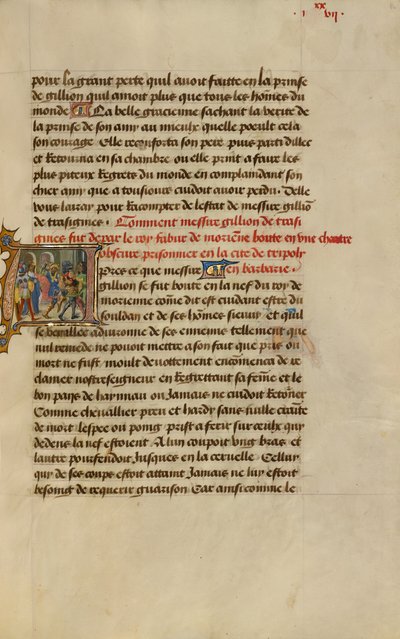 xx
i vii.
pour la grant perte quil auoit faitte en la prinse
de gillion quil amoit plus que tous les hom̃es du
monde La belle gracienne sachant la verite de
la prinse de son amy au mieulx quelle poeult cela
son courage Elle reconforta son pere puis party dillec
et Retourna en sa chambre ou elle prinst a faire les
plus piteux Regrets du monde en complaindant son
chier amy que a tousiours cuidoit auoir perdu. Delle
vous lairay pour Racompter de lestat de messire gilliõ
de trasignies. Comment messire gillion de trasi
gnies fut de par le roy fabur de morienne boute en vne chartre
obscure prisonnier en la cite de tripoly
Apres ce que messire en barbarie
gillion se fut boute en la nef du roy de
morienne com̃e dit est cuidant estre du
souldan et de ses hom̃es sieuuy et quil
se vey allec aduironne de ses ennemis tellement que
nul remede ne pouoit mettre a son fait que pris ou
mort ne fust. moult deuottement encom̃enca de re
clamer nostreseigneur en Regrettant sa fem̃e et le
bon pays de haynnau ou Jamais ne cuidoit Retõner
Comme chevallier preu et hardy sans nulle crainte
de mort lespee ou poing prist a ferir sur ceulx quy
dedens la nef estoient A lun coupoit vng bras et
lautre pourfendoit Jusques en la ceruelle Celluy
quy de ses coups estoit attaint Jamais ne luy estoit
besoing de requerir guarison Car ainsi comme le